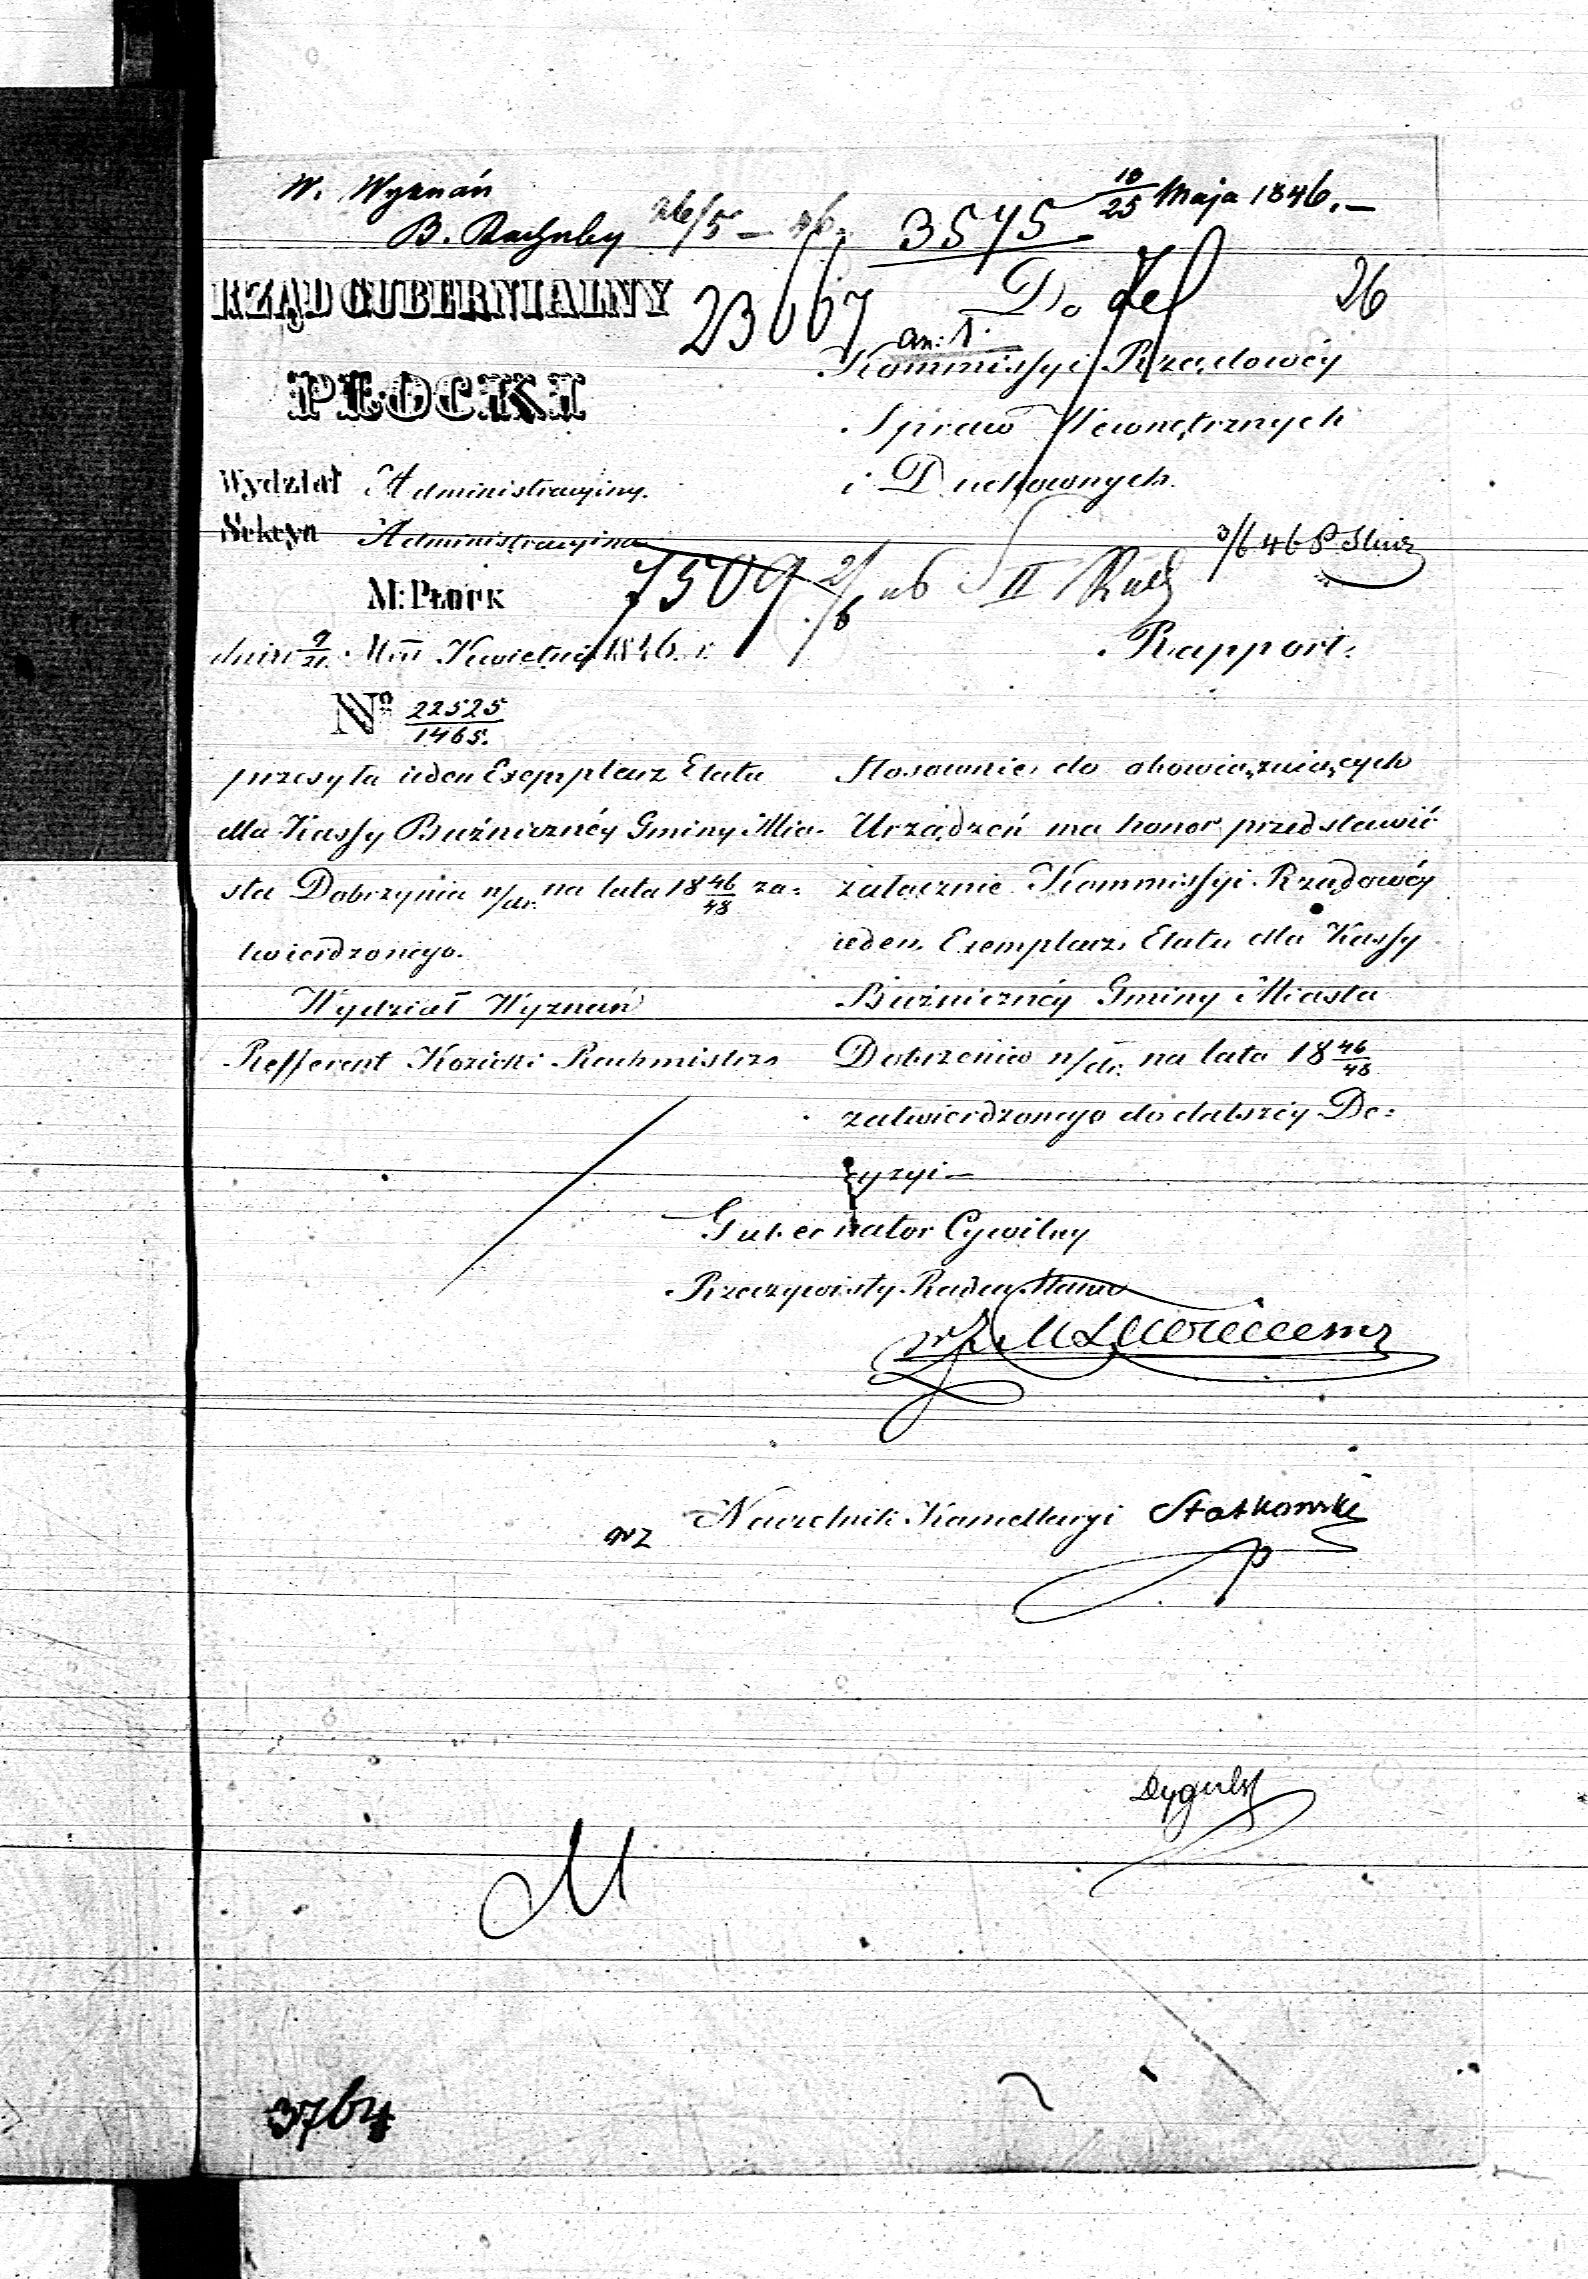 W. Wyznań
B. Rachuby 26/5 – 46.
3575
10/25 Maja 1846.–
RZĄD GUBERNIALNY
23667
Do
26
an: 1.
PŁOCKI
Kommissyi Rządowéy
Spraw Wewnętrznych
i Duchownych.
Wydział Administracyiny.
Sekcya Administracyina
3/6 46
7509 2/6 46 II
M: Płock
dnia 9/21 Kwietnia 1846. r.
Rapport.
Nº 22525/1465.
przesyła ieden Exemplarz Etatu
dla Kassy Bużnicznéy Gminy Mia-
sta Dobrzynia n/dr. na lata 18 46/48 za=
twierdzonego.
Wydział Wyznań
Refferent Kozicki Rachmistrz
Stosownie do obowiązuiących
Urządzeń ma honor przedstawić
załącznie Kommissyi Rządowéy
ieden Exemplarz Etatu dla Kassy
Bużnicznéy Gminy Miasta
Dobrzynia n/dr. na lata 18 46/48
zatwierdzonego do dalszéy De=
cyzyi –
Gubernator Cywilny
Rzeczywisty Radca Stanu
wz Naczelnik Kancellaryi Statkowski
M
3764